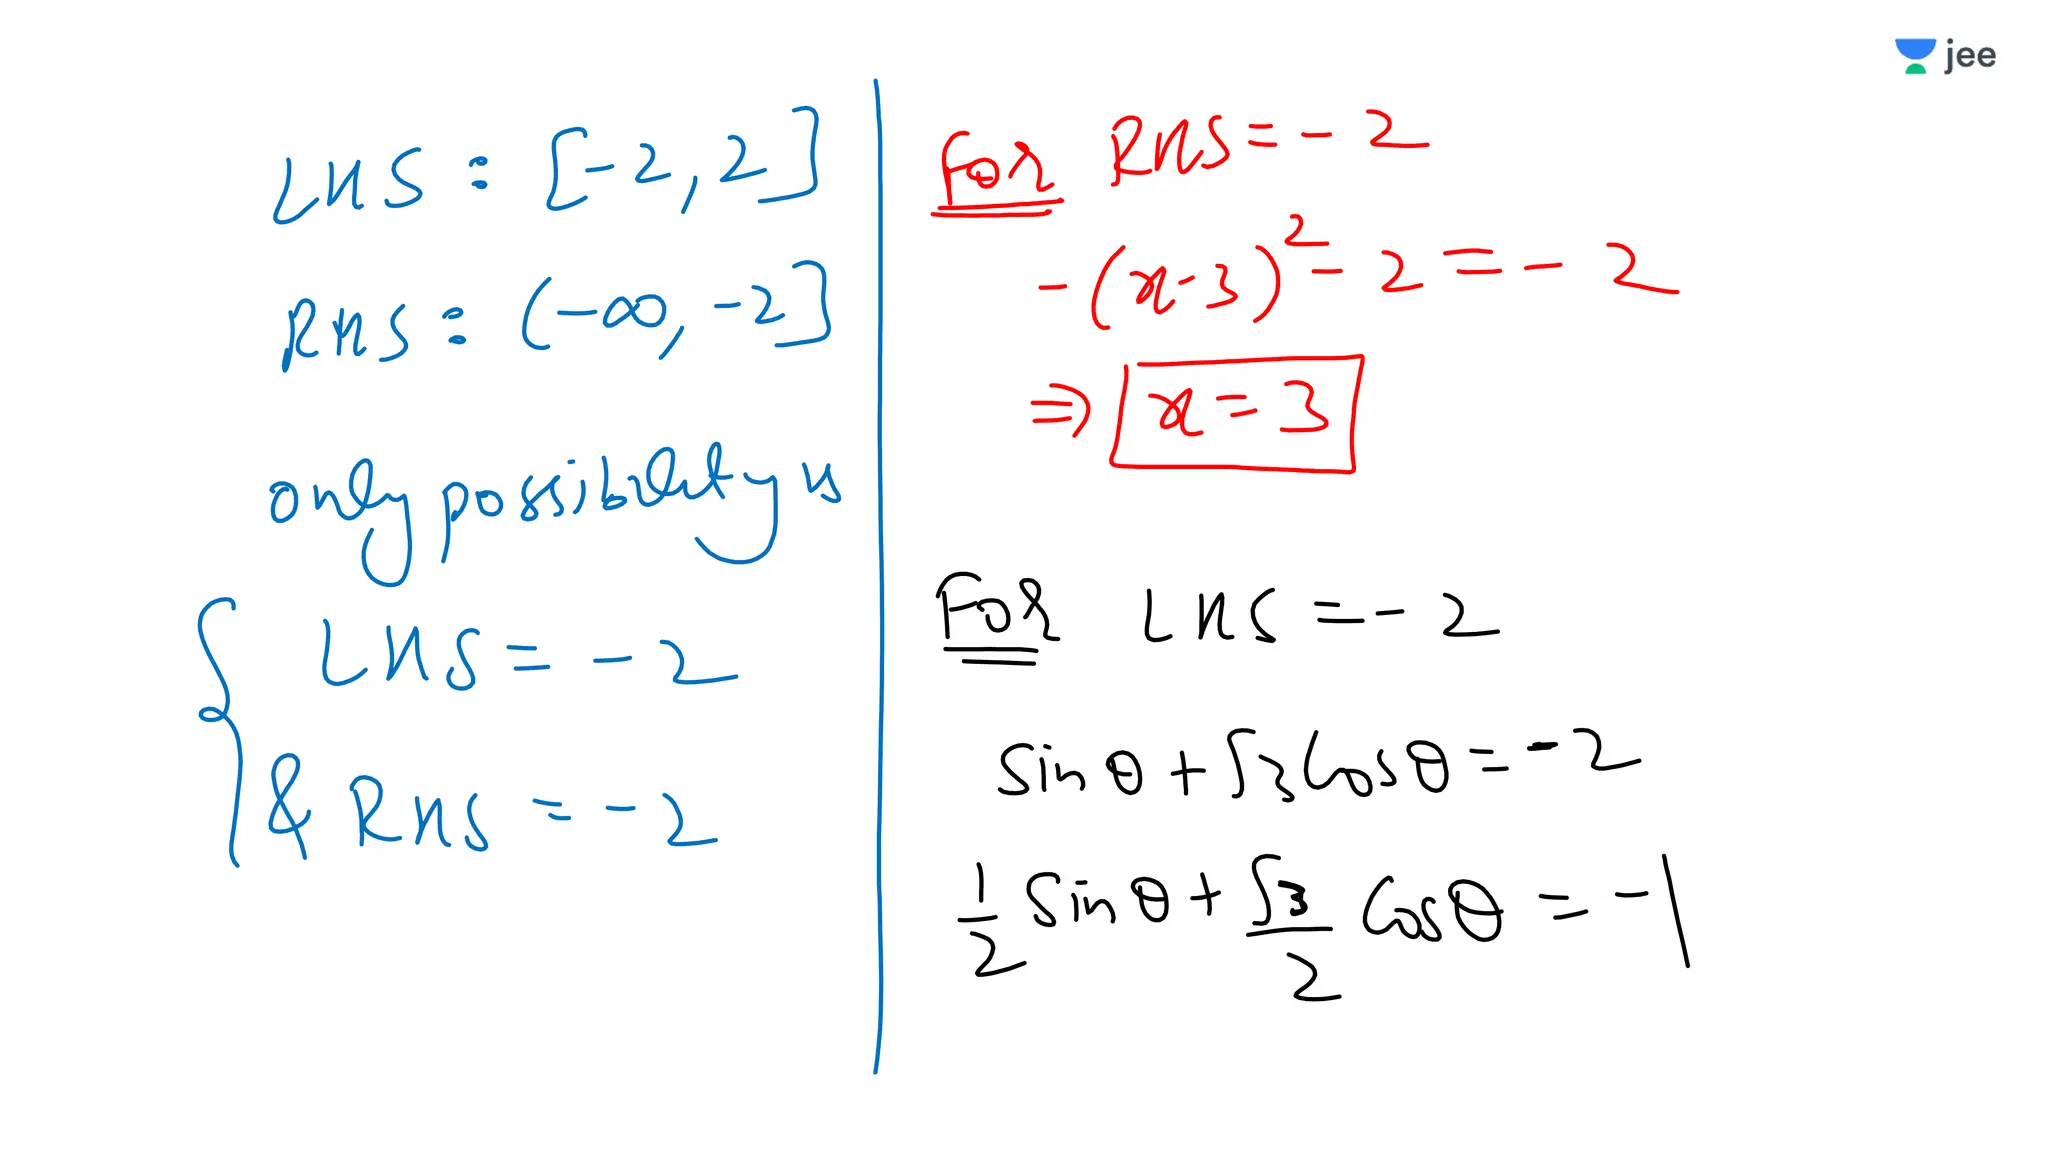 jee
LHS : [-2, 2]
RHS : (-∞, -2]
only possibility is
LHS = -2
& RHS = -2
For RHS = -2
-(x-3)² - 2 = -2
⇒ x = 3
For LHS = -2
sinθ + √3 Cosθ = -2
1/2 Sinθ + √3/2 Cosθ = -1